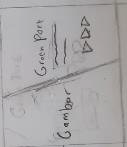 Green Port
Gambar